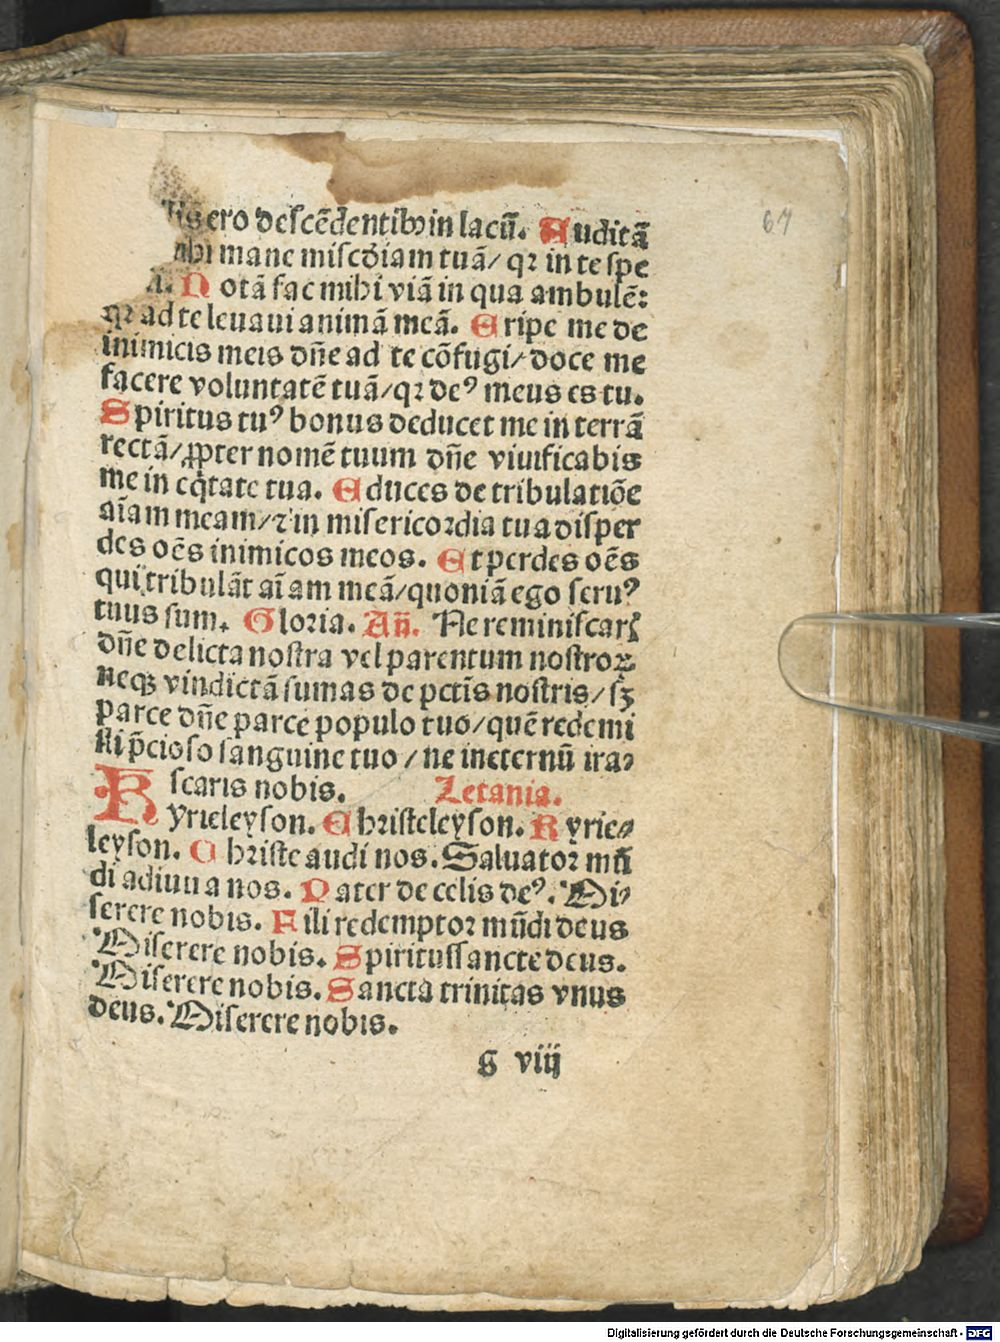 lis ero descēdentibꝰ in lacū. Auditā
mihi mane miscdiam tuā/ qꝛ in te spe
A. Notā fac mihi viā in qua ambulē:
qꝛ ad te leuaui animā meā. Eripe me de
inimicis meis dn̄e ad te cōfugi/ doce me
facere voluntatē tuā/ qꝛ deꝰ meus es tu.
Spiritus tuꝰ bonus deducet me in terrā
rectā/ ꝓpter nomē tuum dn̄e viuificabis
me in eq̄tate tua. Educes de tribulatiōe
aīam meam/ ⁊ in misericordia tua disper
des oēs inimicos meos. Et perdes oēs
qui tribulāt aīam meā/ quoniā ego seruꝰ
tuus sum. Gloria. Añ. Ne reminiscarꝭ
dn̄e delicta nostra vel parentum nostroꝝ
neqꝫ vindictā sumas de pctīs nostris/ sꝫ
parce dn̄e parce populo tuo/ quē redemi
sti p̄cioso sanguine tuo / ne ineternū ira⸗
scaris nobis. Letania.
Kyrieleyson. Christeleyson. Kyrie⸗
leyson. Christe audi nos. Saluator mū
di adiuua nos. Pater de celis deꝰ. Mi⸗
serere nobis. Fili redemptor mūdi deus
Miserere nobis. Spiritussancte deus.
Miserere nobis. Sancta trinitas vnus
deus. Miserere nobis.
G viij
67
Digitalisierung gefördert durch die Deutsche Forschungsgemeinschaft - DFG